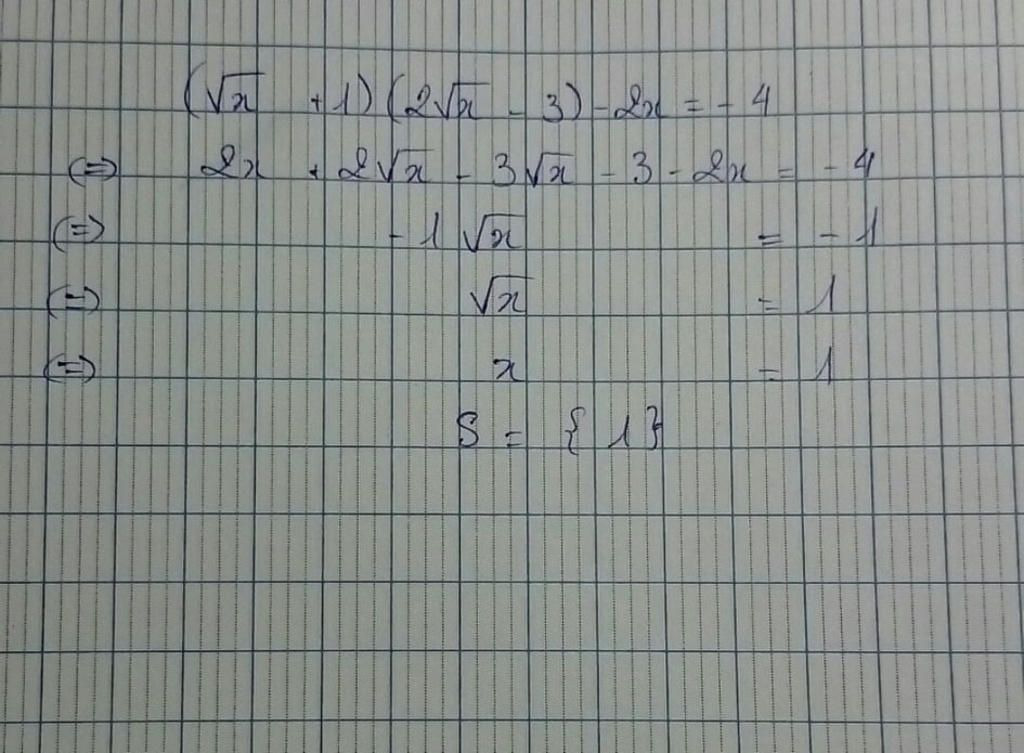 (√x + 1)(2√x - 3) - 2x = - 4
(=) 2x + 2√x - 3√x - 3 - 2x = - 4
(=) - 1 √x = - 1
(=) √x = 1
(=) x = 1
S = { 1 }